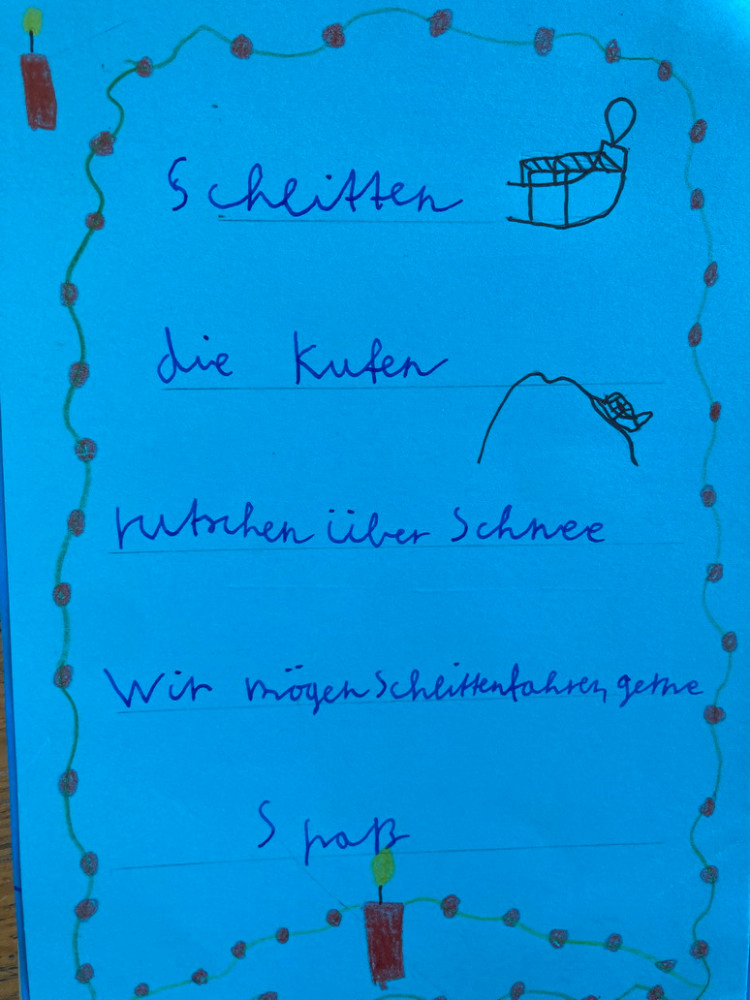 Schlitten
die Kufen
rutschen über Schnee
Wir mögen Schlittenfahren gerne
Spaß